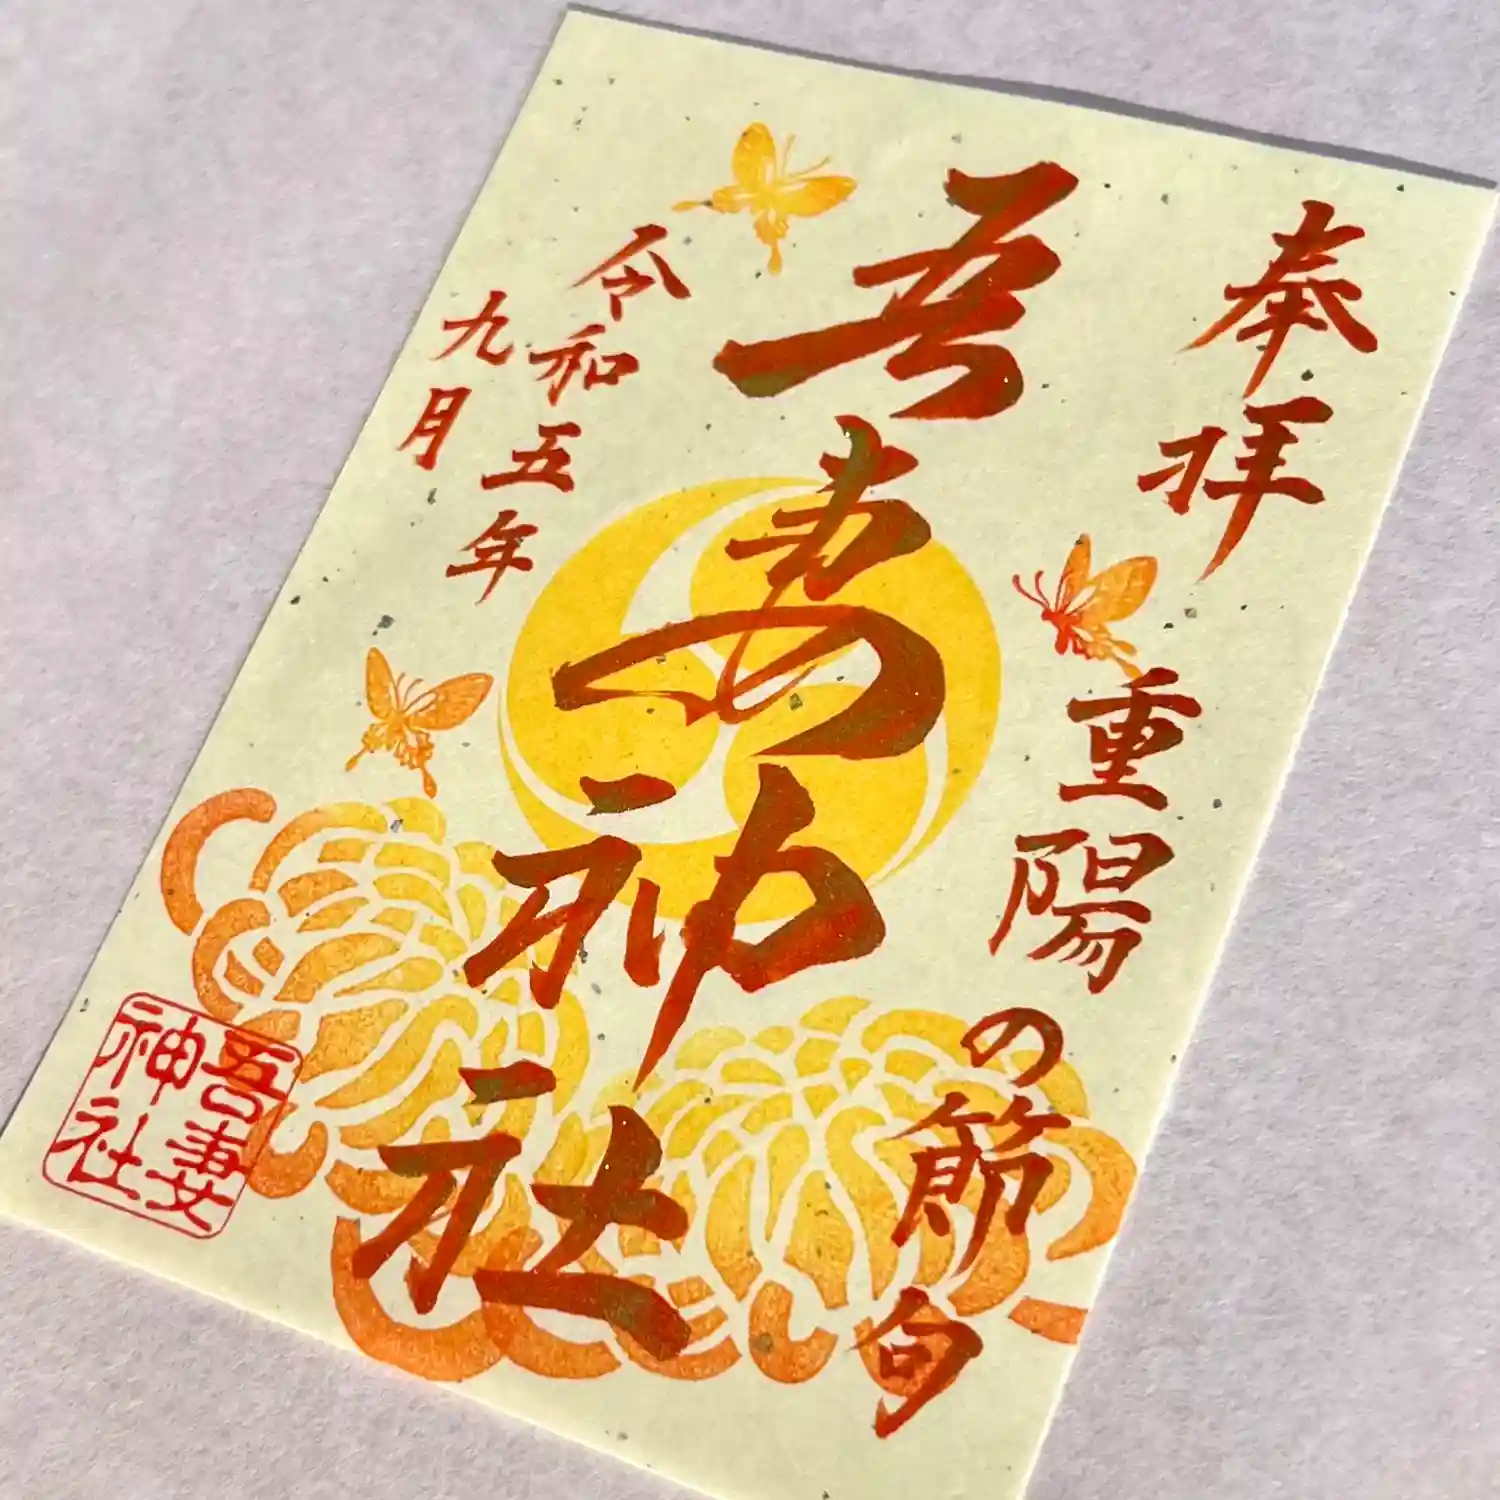 奉拝
重陽の節句
吾妻神社
令和五年
九月
吾妻
神社